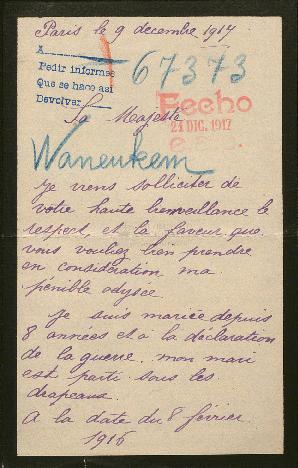 Paris le 9 decembre 1917
A
Pedir informes
Que se haco asi
Devolver
67373
Fecho
21 DIC. 1917
Sa Majesté
Waneukem
Je viens solliciter de
votre haute bienveillance le
respect et la faveur que
vous vouliez bien prendre
en considération ma
pénible odysée.
Je suis mariée depuis
8 années et à la déclaration
de la guerre, mon mari
est parti sous les
drapeaux.
A la date du 8 février
1916